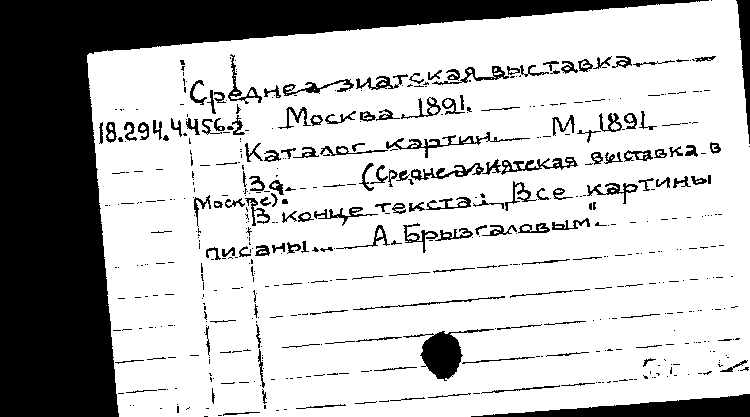 Среднеазиатская выставка.
Москва. 1891.
18.294.4.456-2
Каталог картин. М., 1891.
3с. (Среднеазиятская выставка в
Москве).
В конце текста: „Все картины
писаны... А. Брызгаловым“.